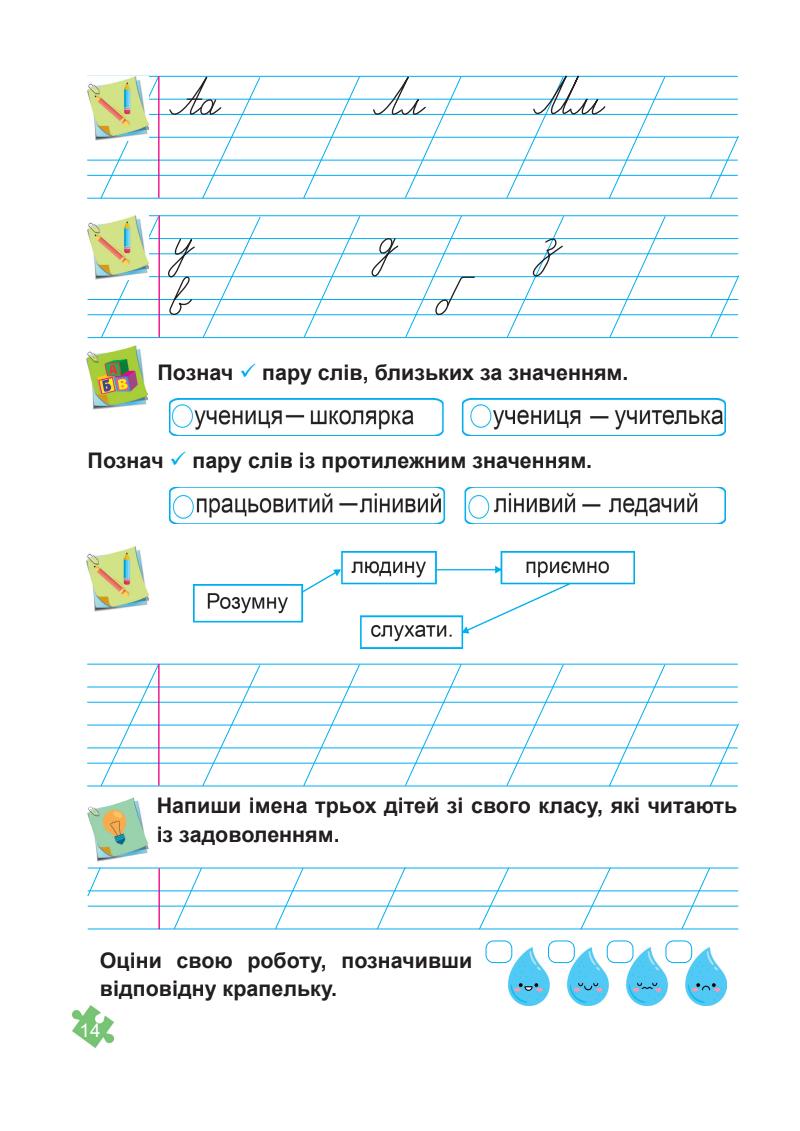 Аа Лл Мм
у д з
в б
Познач ✓ пару слів, близьких за значенням.
учениця — школярка учениця — учителька
Познач ✓ пару слів із протилежним значенням.
працьовитий — лінивий лінивий — ледачий
людину приємно
Розумну
слухати.
Напиши імена трьох дітей зі свого класу, які читають
із задоволенням.
Оціни свою роботу, позначивши
відповідну крапельку.
14